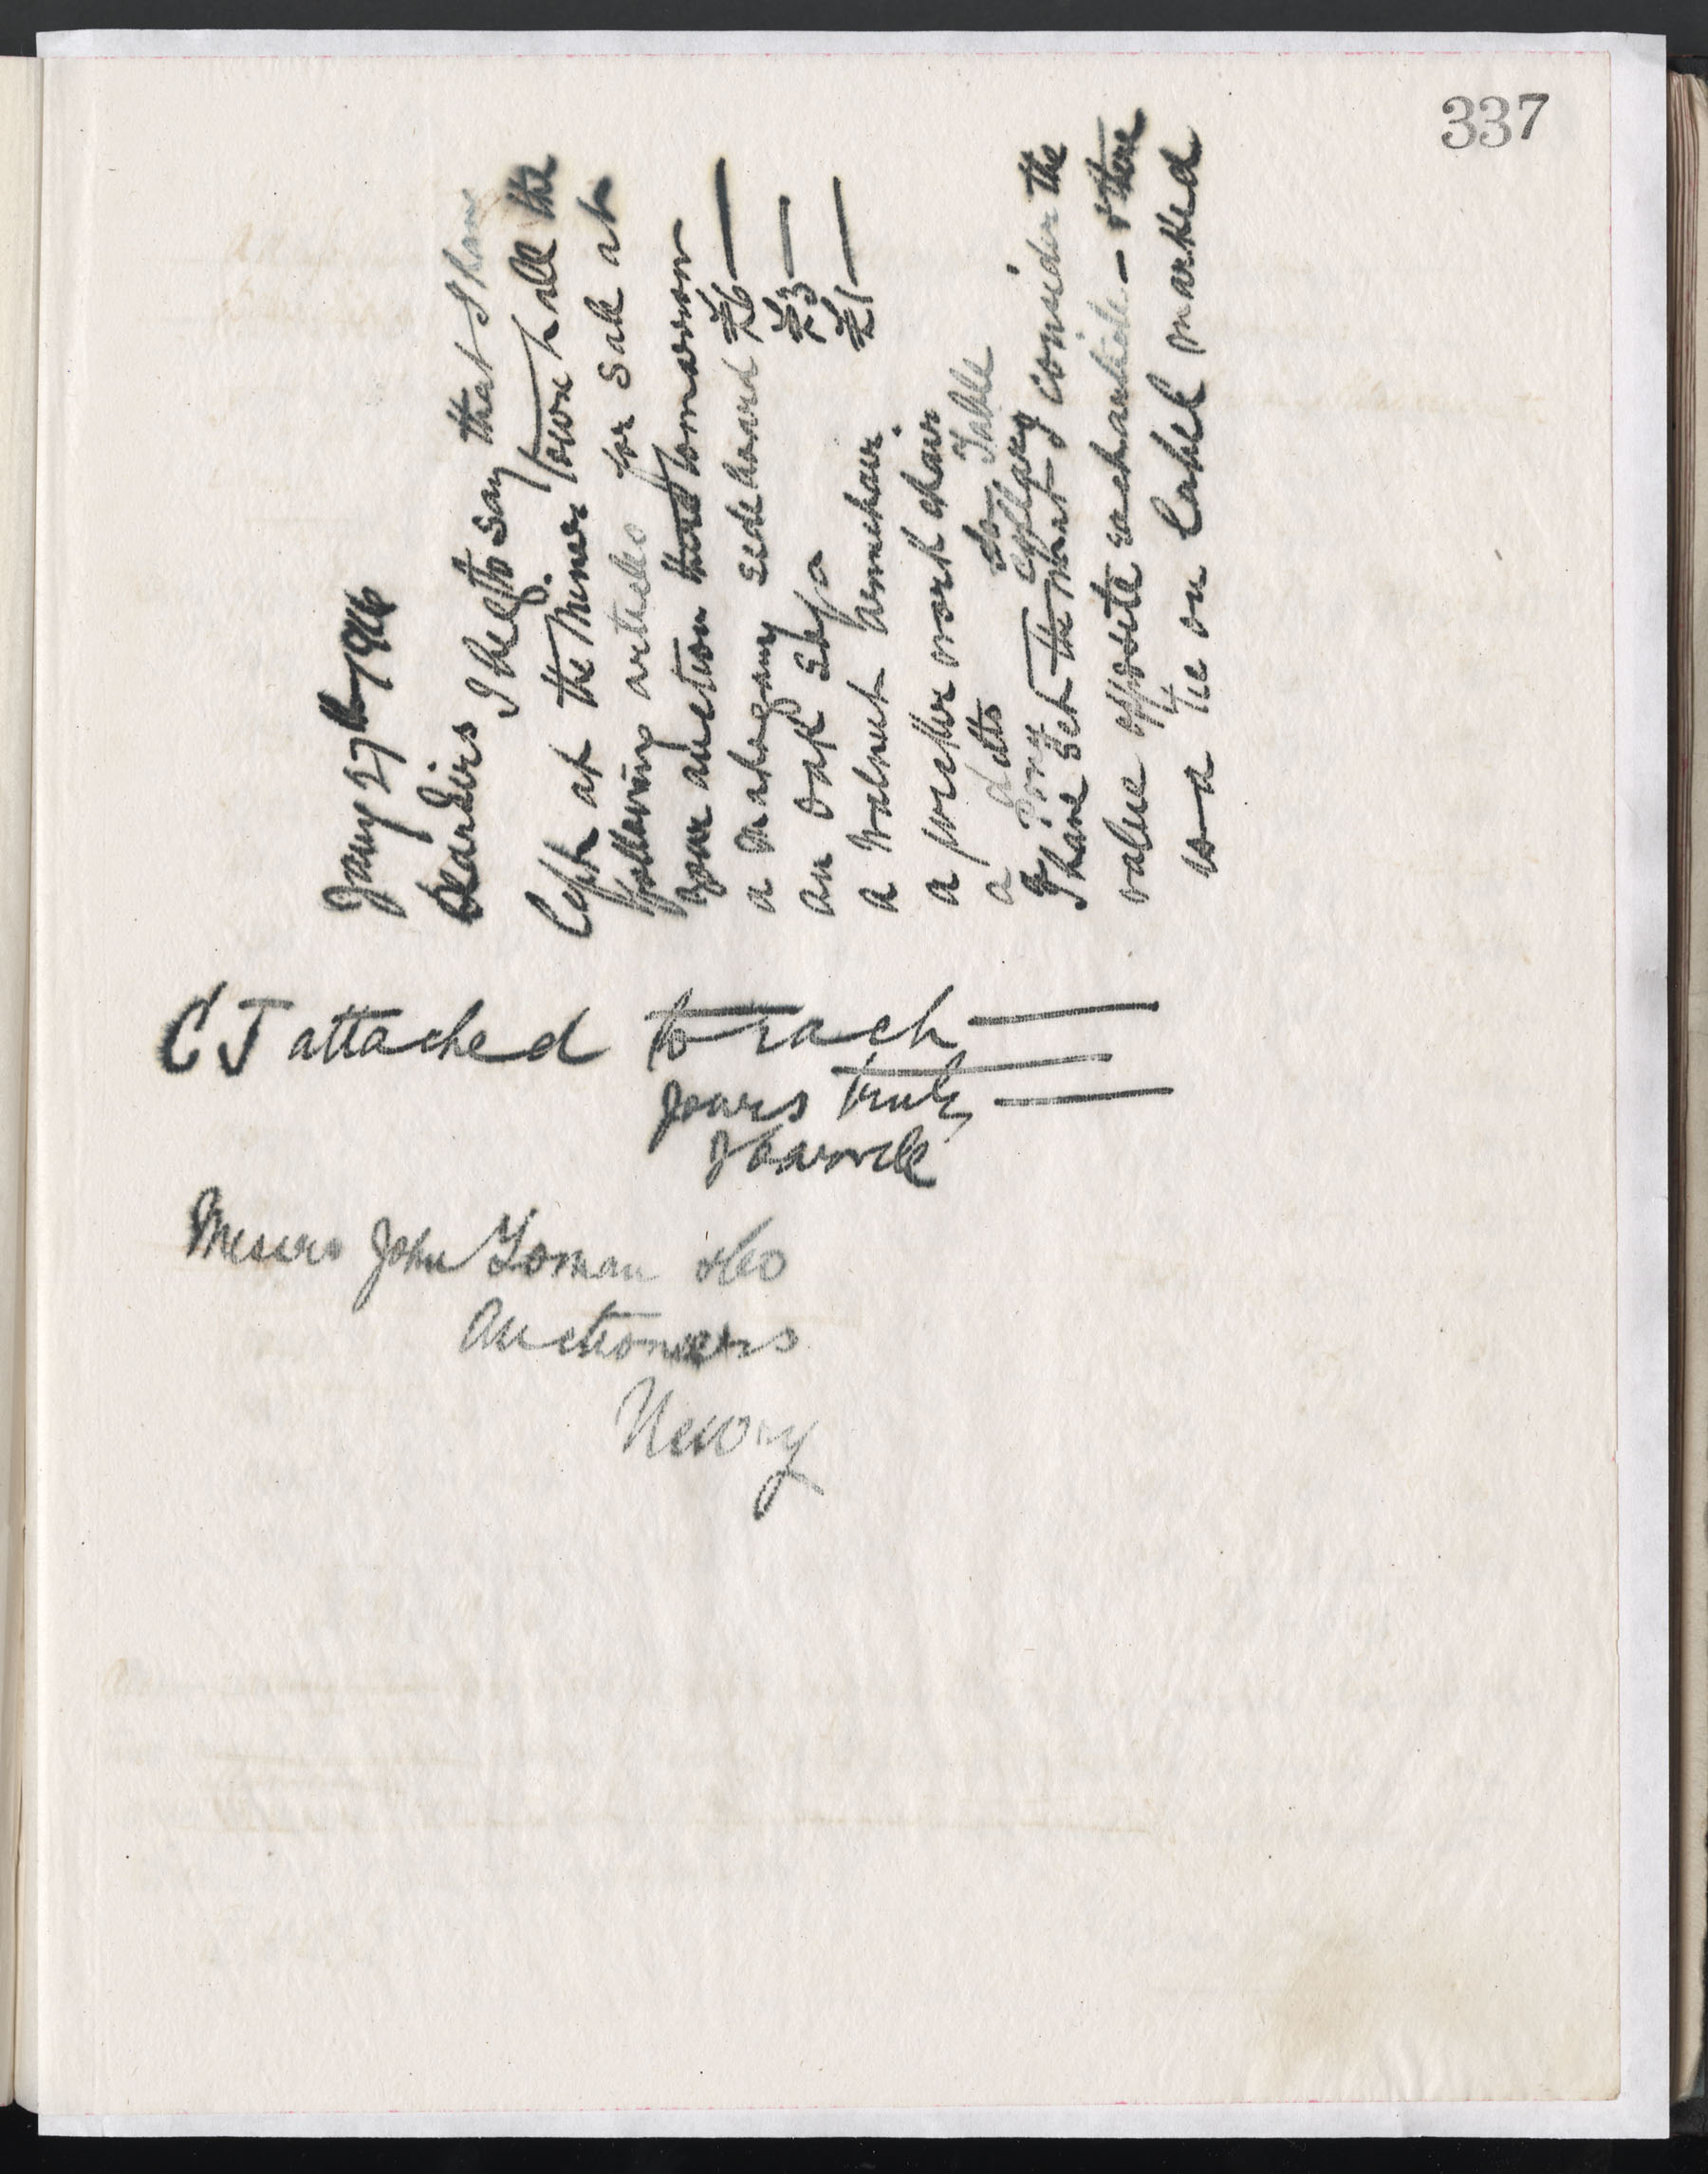 337
Jany 27th 1916
Dear Sirs I beg to say that I have
left at the Minor Town hall the
following articles for sale at
your auction there tomorrow
a Mahogany sideboard £6 —
an oak sofa £3 —
a walnut armchair. £1 —
a wicker work chair
a ditto do Table
a Pony
I have set the what I consider the
value opposite each article — & there
is a tie on label marked
C J attached to each —
yours truly —
Messrs John Loman & Co
Auctioneers
Newry